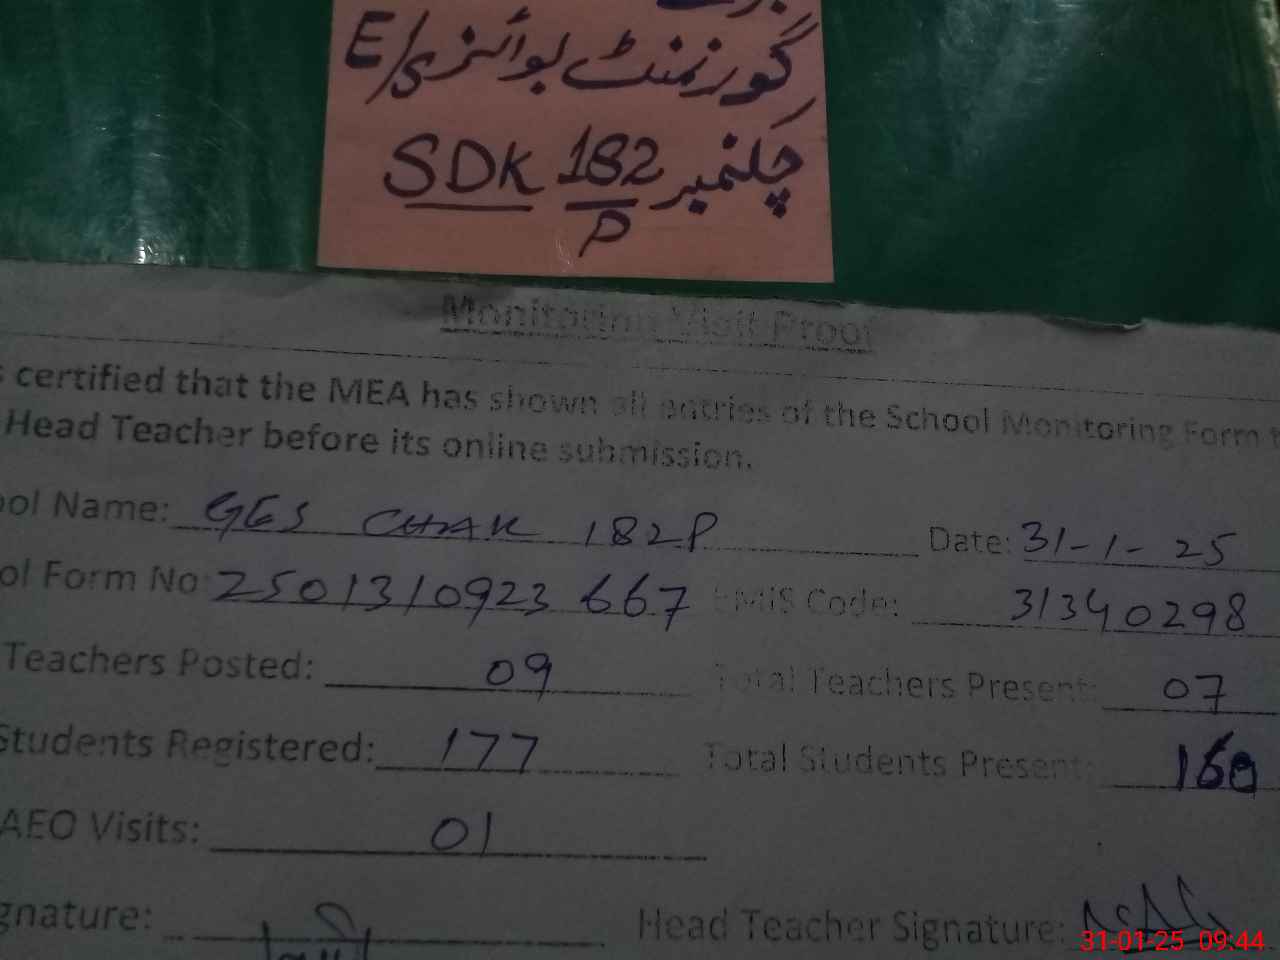 گورنمنٹ بوائز E/S
چکنمبر 182/P SDK
Monitoring Visit Proof
certified that the MEA has shown all entries of the School Monitoring Form
Head Teacher before its online submission.
Name: GES CHAK 182P Date: 31-1-25
Form No 2501310923667 EMIS Code: 31340298
Teachers Posted: 09 Total Teachers Present: 07
Students Registered: 177 Total Students Present: 160
AEO Visits: 01
Head Teacher Signature:
31-01-25 09:44